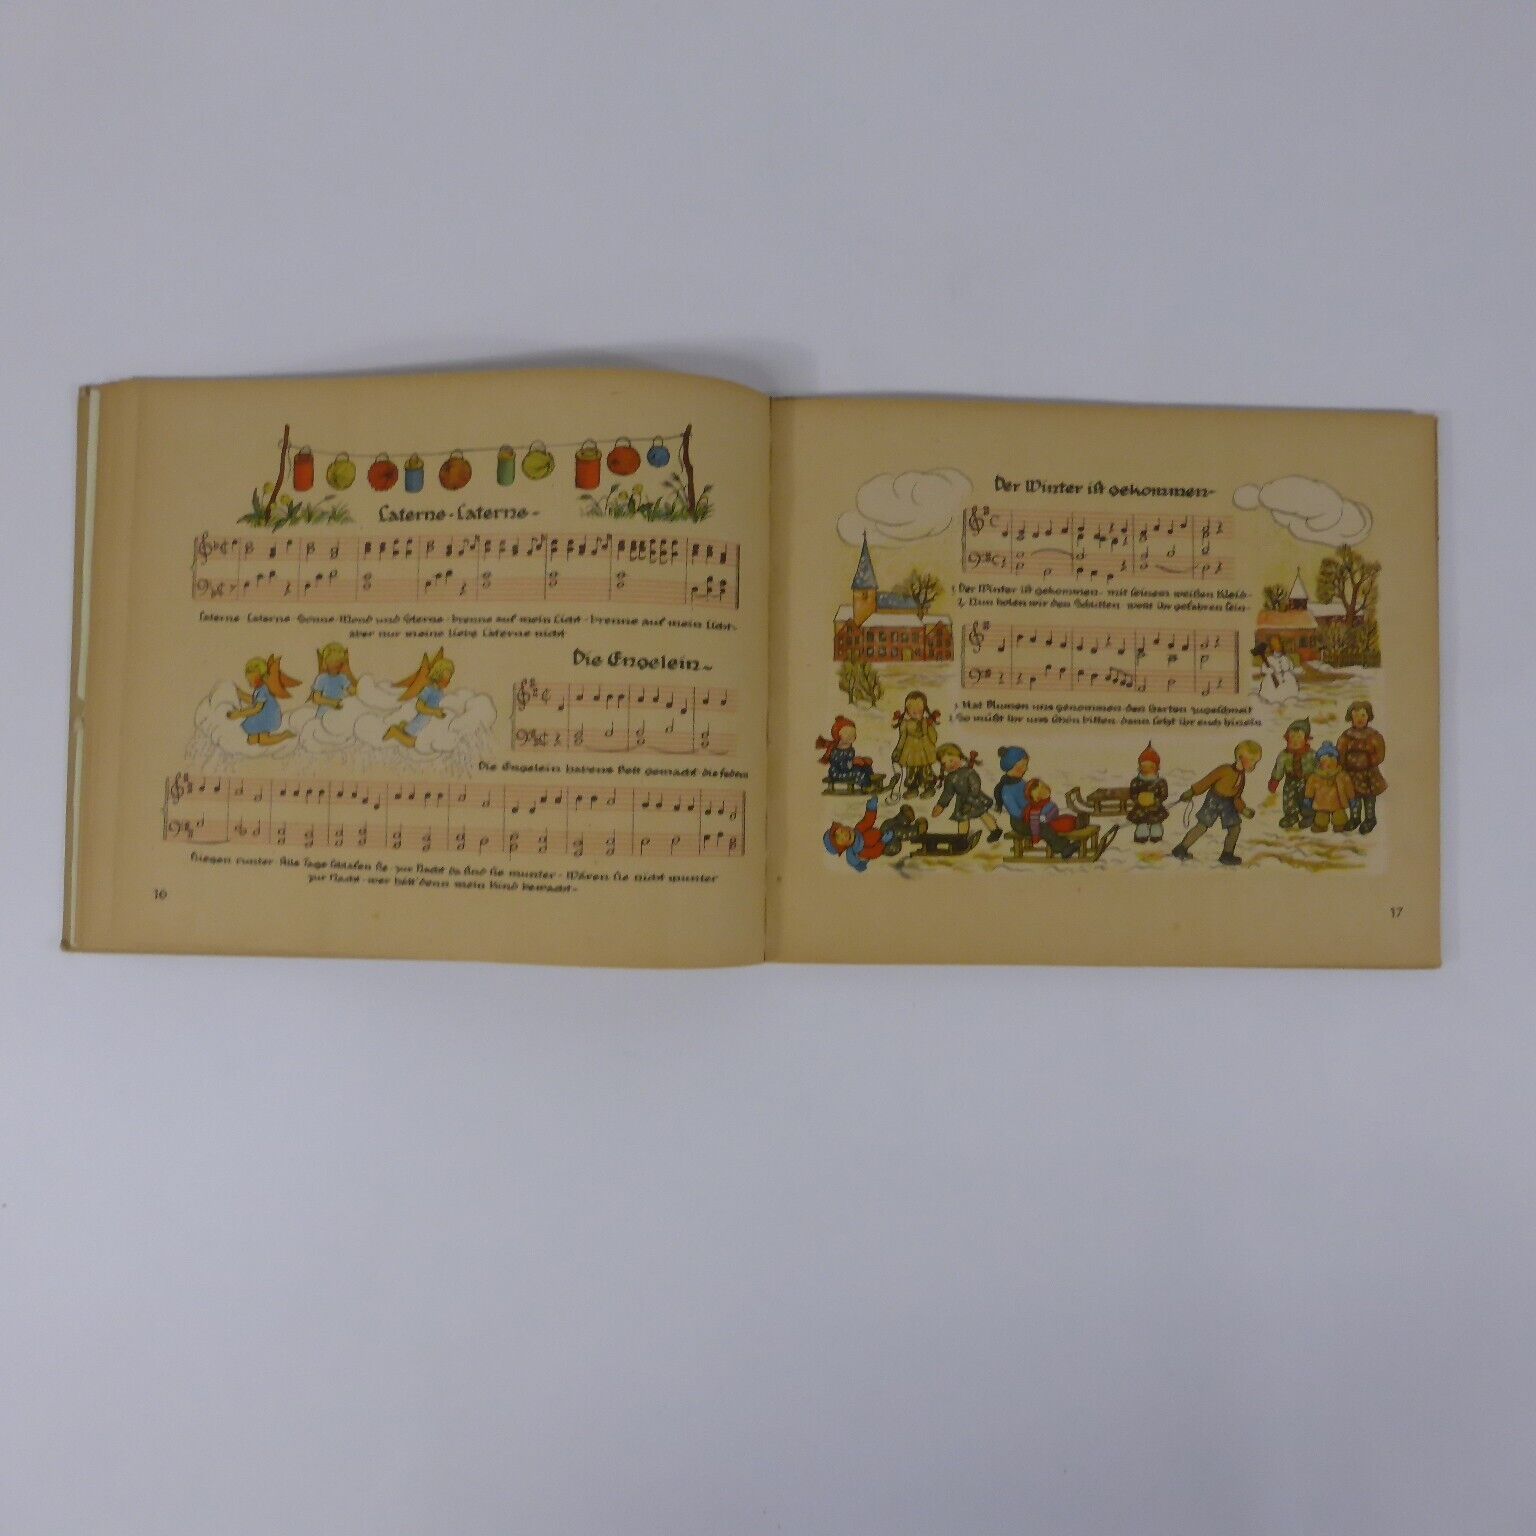 Laterne-Laterne-
Laterne-Laterne-Sonne-Mond und Sterne-brenne auf mein Licht-brenne auf mein Licht-
aber nur meine liebe Laterne nicht
Die Engelein~
Die Engelein habens Bett gemacht-die Federn
fliegen runter-Alle Tage schlafen sie-zur Nacht da sind sie munter-Wären sie nicht munter
zur Nacht-wer hält denn mein Kind bewacht-
16
Der Winter ist gekommen-
1. Der Winter ist gekommen-mit seinem weißen Kleid-
2. Nun holen wir den Schlitten-wollt ihr gefahren sein-
1. Hat Blumen uns genommen-den Garten zugeschneit
2. So müßt ihr uns schön bitten-dann setzt ihr euch hinein
17